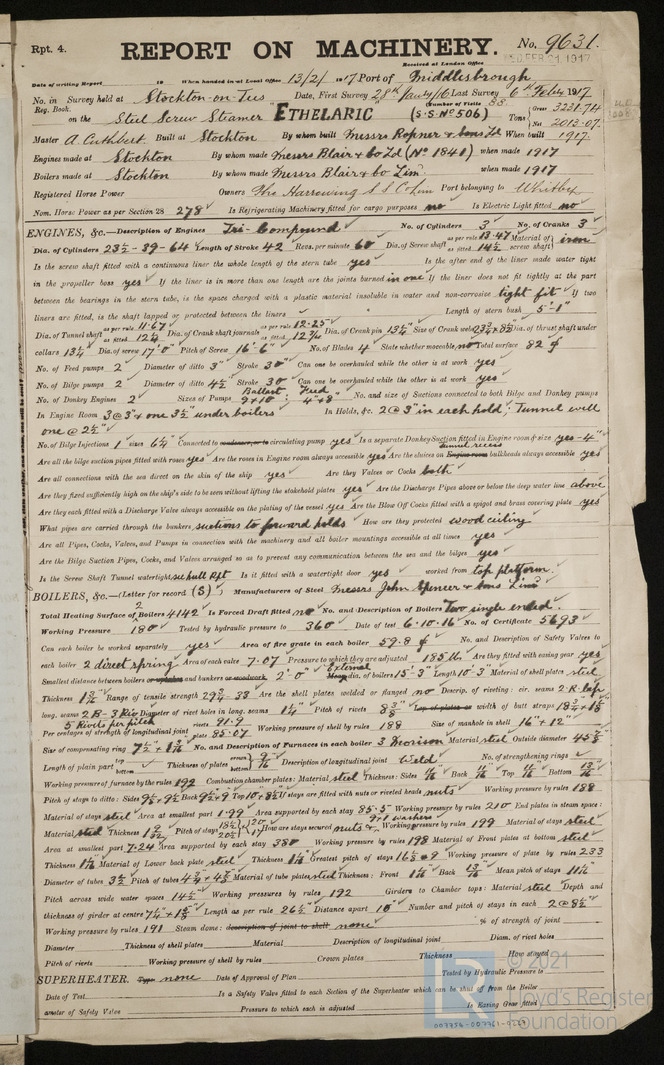 Rpt. 4. REPORT ON MACHINERY. No. 9631.
Received at London Office FEB 21 1917
Date of writing Report 19 When handed in at Local Office 13/2/1917 Port of Middlesbrough
No. in Reg. Book. Survey held at Stockton-on-Tees Date, First Survey 28th Jany/16 Last Survey 6th Feby 1917
(Number of Visits 53
on the Steel Screw Steamer ETHELARIC (S.S. No 506) Tons Gross 3231.74 Net 2013.07
Master A. Cuthbert Built at Stockton By whom built Messrs Ropner & Sons Ld When built 1917
Engines made at Stockton By whom made Messrs Blair & Co Ld (No 1841) when made 1917
Boilers made at Stockton By whom made Messrs Blair & Co Lim when made 1917
Registered Horse Power Owners The Harrowing S S Co Lim Port belonging to Whitby
Nom. Horse Power as per Section 28 278 Is Refrigerating Machinery fitted for cargo purposes no Is Electric Light fitted no
ENGINES, &c.—Description of Engines Tri-Compound No. of Cylinders 3 No. of Cranks 3
Dia. of Cylinders 23½-39-64 Length of Stroke 42 Revs. per minute 60 Dia. of Screw shaft as per rule 13.47 as fitted 14½ Material of screw shaft iron
Is the screw shaft fitted with a continuous liner the whole length of the stern tube yes Is the after end of the liner made water tight
in the propeller boss yes If the liner is in more than one length are the joints burned in one If the liner does not fit tightly at the part
between the bearings in the stern tube, is the space charged with a plastic material insoluble in water and non-corrosive tight fit If two
liners are fitted, is the shaft lapped or protected between the liners Length of stern bush 5'-1"
Dia. of Tunnel shaft as per rule 11.67 as fitted 12¼ Dia. of Crank shaft journals as per rule 12.25 as fitted 12¾ Dia. of Crank pin 13¼ Size of Crank webs Dia. of thrust shaft under
collars 13¼ Dia. of screw 17'0" Pitch of Screw 16'-6" No. of Blades 4 State whether moveable no Total surface 82
No. of Feed pumps 2 Diameter of ditto 3" Stroke 30" Can one be overhauled while the other is at work yes
No. of Bilge pumps 2 Diameter of ditto 4½ Stroke 30" Can one be overhauled while the other is at work yes
No. of Donkey Engines 2 Sizes of Pumps Ballast 9×10" : Feed No. and size of Suctions connected to both Bilge and Donkey pumps
In Engine Room 3@3" & one 3½" under boilers In Holds, &c. 2@3" in each hold: Tunnel well
one @ 2½"
No. of Bilge Injections 1 sizes 6¼" Connected to condenser, or to circulating pump yes Is a separate Donkey Suction fitted in Engine room & size yes-4"
Are all the bilge suction pipes fitted with roses yes Are the roses in Engine room always accessible yes Are the sluices on Engine room tunnel recess bulkheads always accessible yes
Are all connections with the sea direct on the skin of the ship yes Are they Valves or Cocks both
Are they fixed sufficiently high on the ship's side to be seen without lifting the stokehold plates yes Are the Discharge Pipes above or below the deep water line above
Are they each fitted with a Discharge Valve always accessible on the plating of the vessel yes Are the Blow Off Cocks fitted with a spigot and brass covering plate yes
What pipes are carried through the bunkers suctions to forward holds How are they protected wood ceiling
Are all Pipes, Cocks, Valves, and Pumps in connection with the machinery and all boiler mountings accessible at all times yes
Are the Bilge Suction Pipes, Cocks, and Valves arranged so as to prevent any communication between the sea and the bilges yes
Is the Screw Shaft Tunnel watertight see hull rpt Is it fitted with a watertight door yes worked from top platform.
BOILERS, &c.—(Letter for record (S)) Manufacturers of Steel Messrs John Spencer & Sons Limd
Total Heating Surface of 2 Boilers 4142 Is Forced Draft fitted no No. and Description of Boilers Two single ended.
Working Pressure 180 Tested by hydraulic pressure to 360 Date of test 6.10.16 No. of Certificate 5693
Can each boiler be worked separately yes Area of fire grate in each boiler 59.8 No. and Description of Safety Valves to
each boiler 2 direct spring Area of each valve 7.07 Pressure to which they are adjusted 185 lbs Are they fitted with easing gear yes
Smallest distance between boilers or uptakes and bunkers or woodwork 2'-0" External Mean dia. of boilers 15'-3" Length 10'3" Material of shell plates steel
Thickness Range of tensile strength 29¾-33 Are the shell plates welded or flanged no Descrip. of riveting: cir. seams 2 R. lap
long. seams 2B-3 Riv 5 Rivets per pitch Diameter of rivet holes in long. seams 1¼" Pitch of rivets 8⅜" Lap of plates or width of butt straps
Per centages of strength of longitudinal joint rivets 91.9 plate 85.07 Working pressure of shell by rules 188 Size of manhole in shell 16"×12"
Size of compensating ring No. and Description of Furnaces in each boiler 3 Morison Material steel Outside diameter 45⅝"
Length of plain part top bottom Thickness of plates crown bottom 9/16 Description of longitudinal joint weld No. of strengthening rings
Working pressure of furnace by the rules 192 Combustion chamber plates: Material steel Thickness: Sides 11/16 Back 11/16 Top 11/16 Bottom 13/16
Pitch of stays to ditto: Sides Back Top If stays are fitted with nuts or riveted heads nuts Working pressure by rules 188
Material of stays steel Area at smallest part 1.99 Area supported by each stay 85.5 Working pressure by rules 210 End plates in steam space:
Material steel Thickness Pitch of stays How are stays secured nuts & washers Working pressure by rules 199 Material of stays steel
Area at smallest part 7.24 Area supported by each stay 380 Working pressure by rules 198 Material of Front plates at bottom steel
Thickness Material of Lower back plate steel Thickness Greatest pitch of stays Working pressure of plate by rules 233
Diameter of tubes 3½ Pitch of tubes Material of tube plates steel Thickness: Front Back Mean pitch of stays
Pitch across wide water spaces 14½" Working pressures by rules 192 Girders to Chamber tops: Material steel Depth and
thickness of girder at centre Length as per rule 26½ Distance apart 10" Number and pitch of stays in each 2@8½"
Working pressure by rules 191 Steam dome: description of joint to shell none % of strength of joint
Diameter Thickness of shell plates Material Description of longitudinal joint Diam. of rivet holes
Pitch of rivets Working pressure of shell by rules Crown plates Thickness How stayed
SUPERHEATER. Type none Date of Approval of Plan Tested by Hydraulic Pressure to
Date of Test Is a Safety Valve fitted to each Section of the Superheater which can be shut off from the Boiler
ameter of Safety Valve Pressure to which each is adjusted Is Easing Gear fitted
© 2021
Lloyd's Register
Foundation